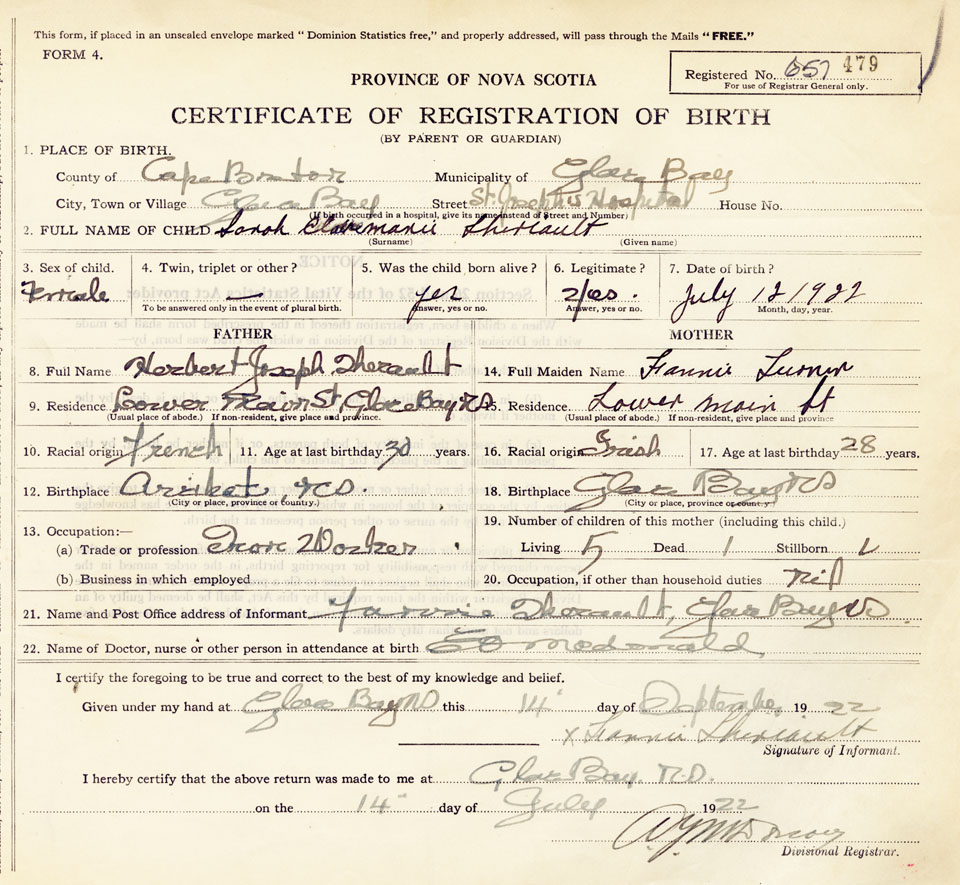 This form, if placed in an unsealed envelope marked "Dominion Statistics free," and properly addressed, will pass through the Mails "FREE."
FORM 4.
Registered No. 657 479
For use of Registrar General only.
PROVINCE OF NOVA SCOTIA
CERTIFICATE OF REGISTRATION OF BIRTH
(BY PARENT OR GUARDIAN)
1. PLACE OF BIRTH.
County of Cape Breton Municipality of Glace Bay
City, Town or Village Glace Bay Street St. Joseph's Hospital House No.
(If birth occurred in a hospital, give its name instead of Street and Number)
2. FULL NAME OF CHILD Sarah Theriault
(Surname) (Given name)
3. Sex of child. 4. Twin, triplet or other? 5. Was the child born alive? 6. Legitimate? 7. Date of birth?
Female — yes yes. July 12 1922
To be answered only in the event of plural birth. Answer, yes or no. Answer, yes or no. Month, day, year.
FATHER MOTHER
8. Full Name Herbert Joseph Therault 14. Full Maiden Name Fannie Turner
9. Residence Lower Main St, Glace Bay NS 15. Residence. Lower Main St
(Usual place of abode.) If non-resident, give place and province. (Usual place of abode.) If non-resident, give place and province
10. Racial origin French 11. Age at last birthday 30 years. 16. Racial origin Irish 17. Age at last birthday 28 years.
12. Birthplace 18. Birthplace Glace Bay NS
(City or place, province or country.) (City or place, province or country.)
13. Occupation:— 19. Number of children of this mother (including this child.)
(a) Trade or profession Iron Worker Living 5 Dead 1 Stillborn
(b) Business in which employed 20. Occupation, if other than household duties Nil
21. Name and Post Office address of Informant Fannie Therault, Glace Bay NS
22. Name of Doctor, nurse or other person in attendance at birth McDonald
I certify the foregoing to be true and correct to the best of my knowledge and belief.
Given under my hand at Glace Bay NS this 14" day of September 1922
x Fannie Theriault
Signature of Informant.
I hereby certify that the above return was made to me at Glace Bay. N.S.
on the 14" day of July 1922
Divisional Registrar.